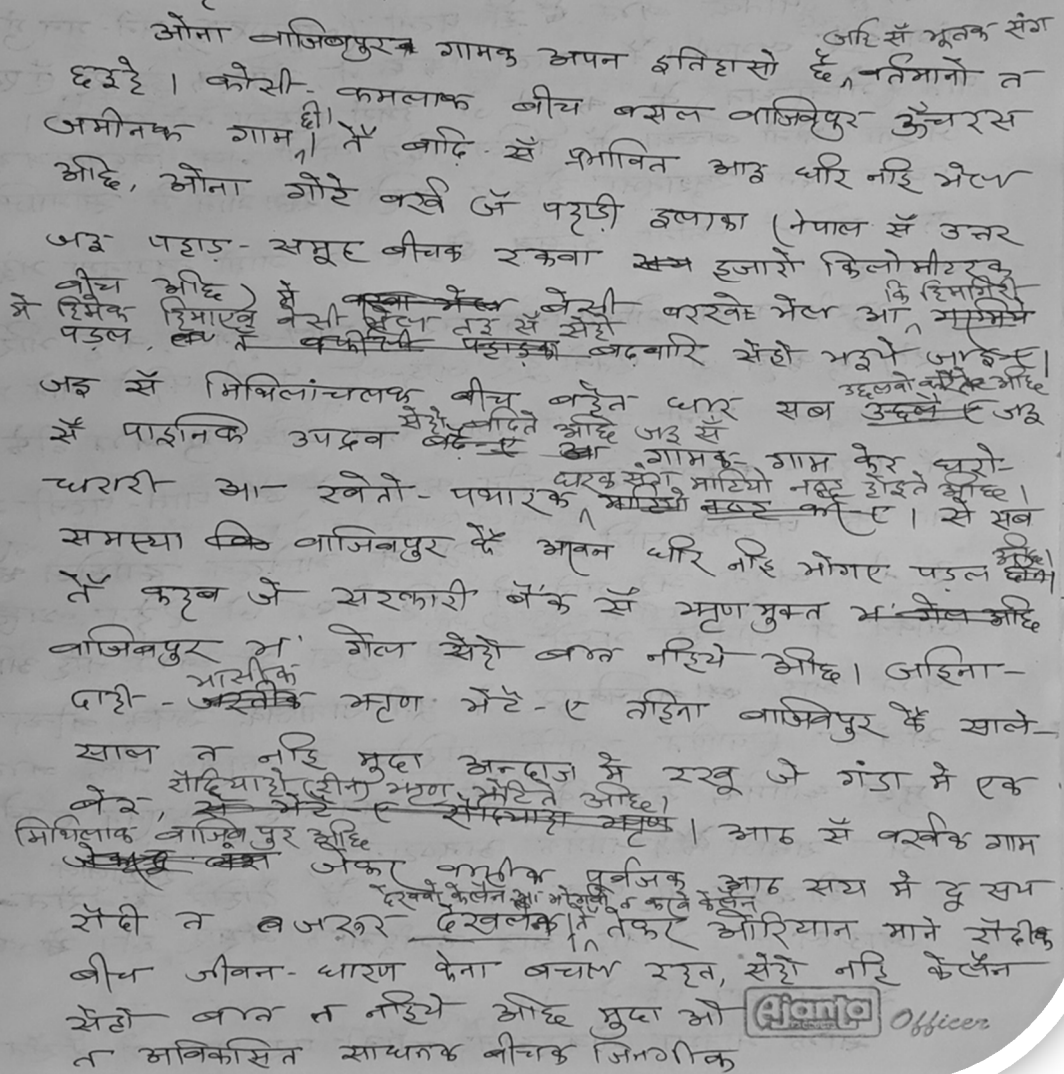 जहि सँ भूतक संग
ओना वाजिवपुर गामक अपन इतिहासो छै, वर्तमानो त
छइहे । कोसी-कमलाक बीच बसल वाजिवपुर ऊँचरस
जमीनक गाम छी। तैँ बाढ़ि सँ प्रभावित आइ धरि नहि भेल
अछि, ओना गोटे बर्ख जँ पहाड़ी इलाका (नेपाल सँ उत्तर
जइ पहाड़-समूह बीचक रकवा हजारो किलोमीटरक
बीच अछि) मे बेसी बरखो भेल आ कि हिमगिरी
मे हिमेक हिमाएब बेसी भेल तइ सँ सेहो
पड़ल, बदबारि सेहो भइये जाइए।
जइ सँ मिथिलांचलक बीच बहैत धार सब उछलबो करिते अछि जइ
सँ पाइनिक उपद्रव सेहो बढ़िते अछि जइ सँ गामक-गाम केर घरो-
घरारी आ खेतो-पथारक घरक संग माटियो नष्ट होइते अछि। से सब
समस्या वाजिवपुर कैँ आवन धरि नहि भोगए पड़ल अछि।
तैँ कहब जे सरकारी बैंक सँ ऋणमुक्त भ'
वाजिवपुर भ' गेल सेहो बात नहिये अछि। जहिना-
दाही-मासीक ऋण भेटै-ए तहिना वाजिवपुर कैँ साले-
साल त नहि मुदा अन्दाज मे रखू जे गंडा मे एक
बेर, रौदियाहो (हीन) ऋण भेटिते अछि। आठ सँ बर्खक गाम
मिथिलाक वाजिवपुर अछि
जेकर पूर्वजक आठ सय मे दू सय
देखबो केलैन आ भोगबो त करबे केलैन
रौदी त जरूर तेकर ओरियान माने रौदीक
बीच जीवन-धारण केना बचल रहत, सेहो नहि केलैन
सेहो बात त नहिये अछि मुदा ओ
त अविकसित साधनक बीचक जिनगीक
Ajanta Officer